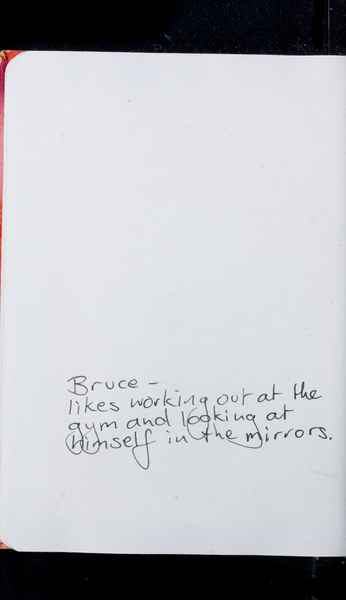 Bruce -
likes working out at the
gym and looking at
himself in the mirrors.